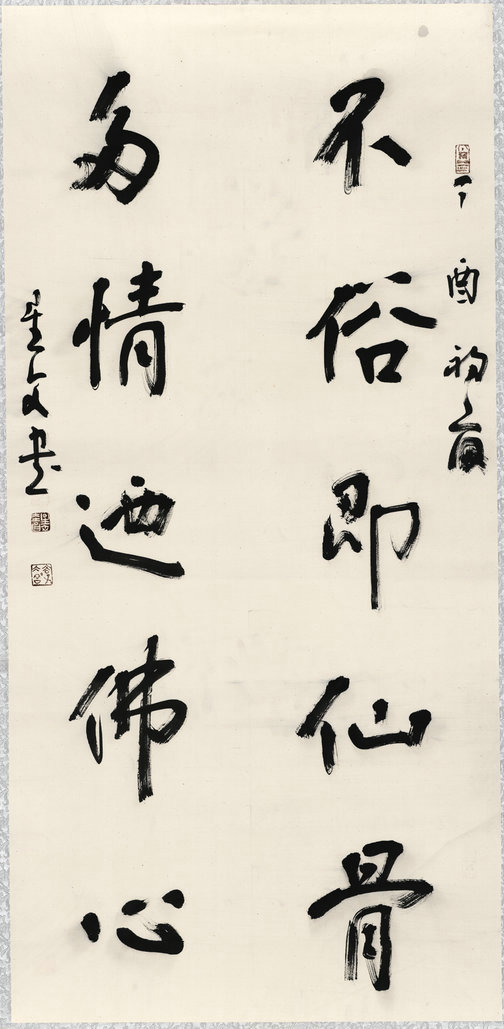 丁酉初夏
不俗即仙骨
多情迺佛心
文書